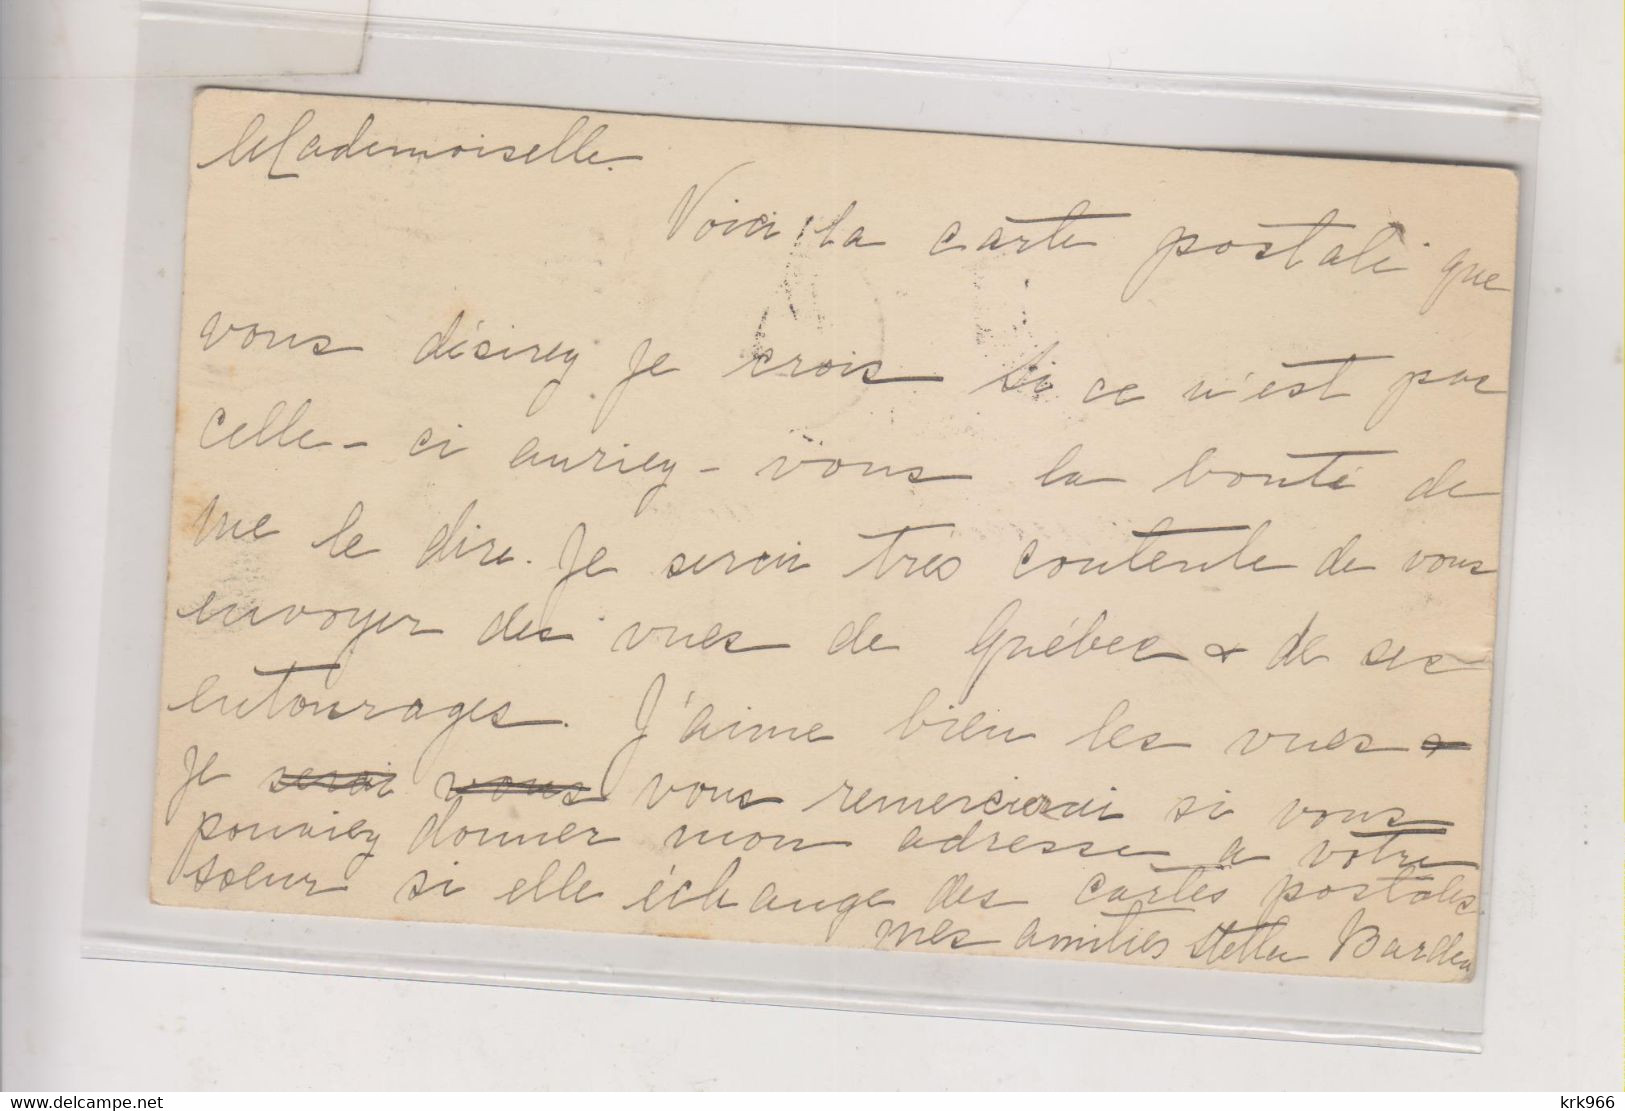 Mademoiselle.
Voici la carte postale que
vous désirez je crois si ce n'est pas
celle-ci auriez-vous la bonté de
me le dire. Je serai très contente de vous
envoyer des vues de Québec & de ses
entourages. J'aime bien les vues &
je serai vous vous remercierai si vous
pouviez donner mon adresse a votre
soeur si elle échange des cartes postales.
mes amitiés Stella
delcampe.net
krk966